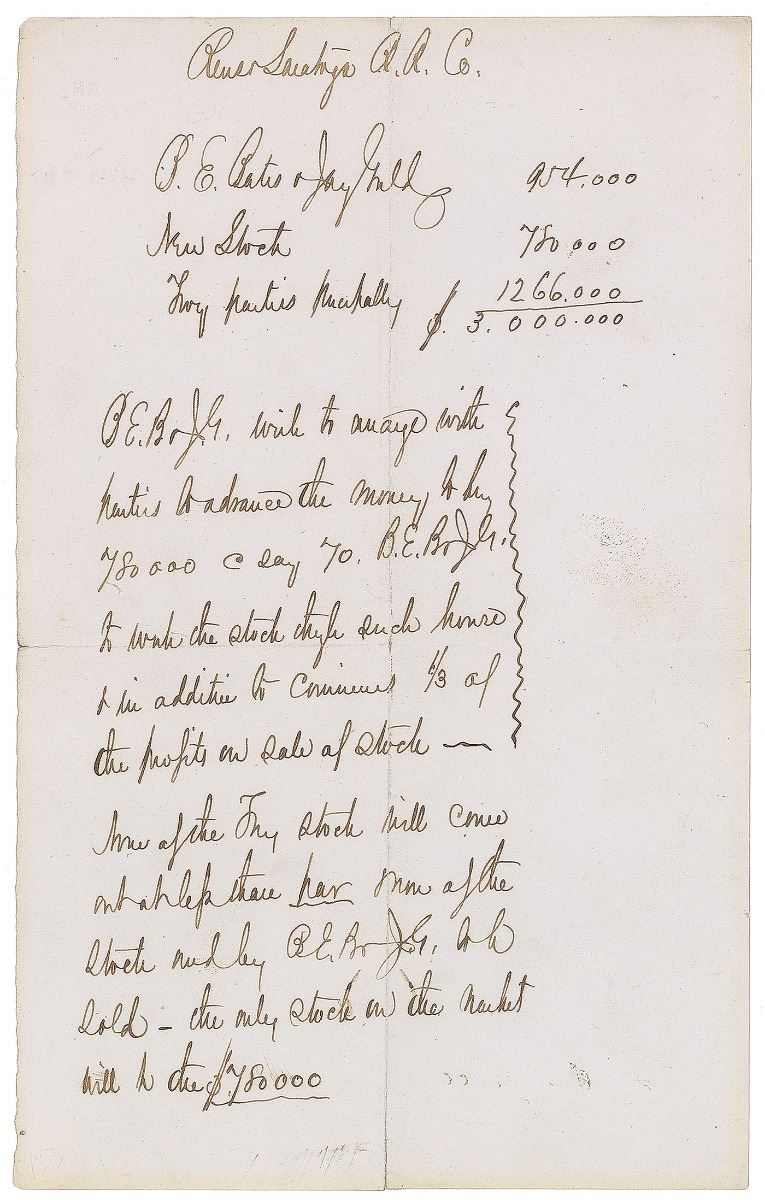 Rens & Saratoga R. R. Co.
B. E. Bates & Jay Gould 954.000
New Stock 780.000
Troy parties principally 1266.000
$. 3.000.000
B.E.B. & J.G. wish to arrange with
parties to advance the money to buy
780000 @ say 70. B.E.B & J.G.
to work the stock through such house
& in addition to 1/3 of
the profits on sale of stock —
None of the Troy stock will come
out at less than par & none of the
stock owned by B.E.B. & J.G. to be
sold – the only stock on the market
will be the $780000